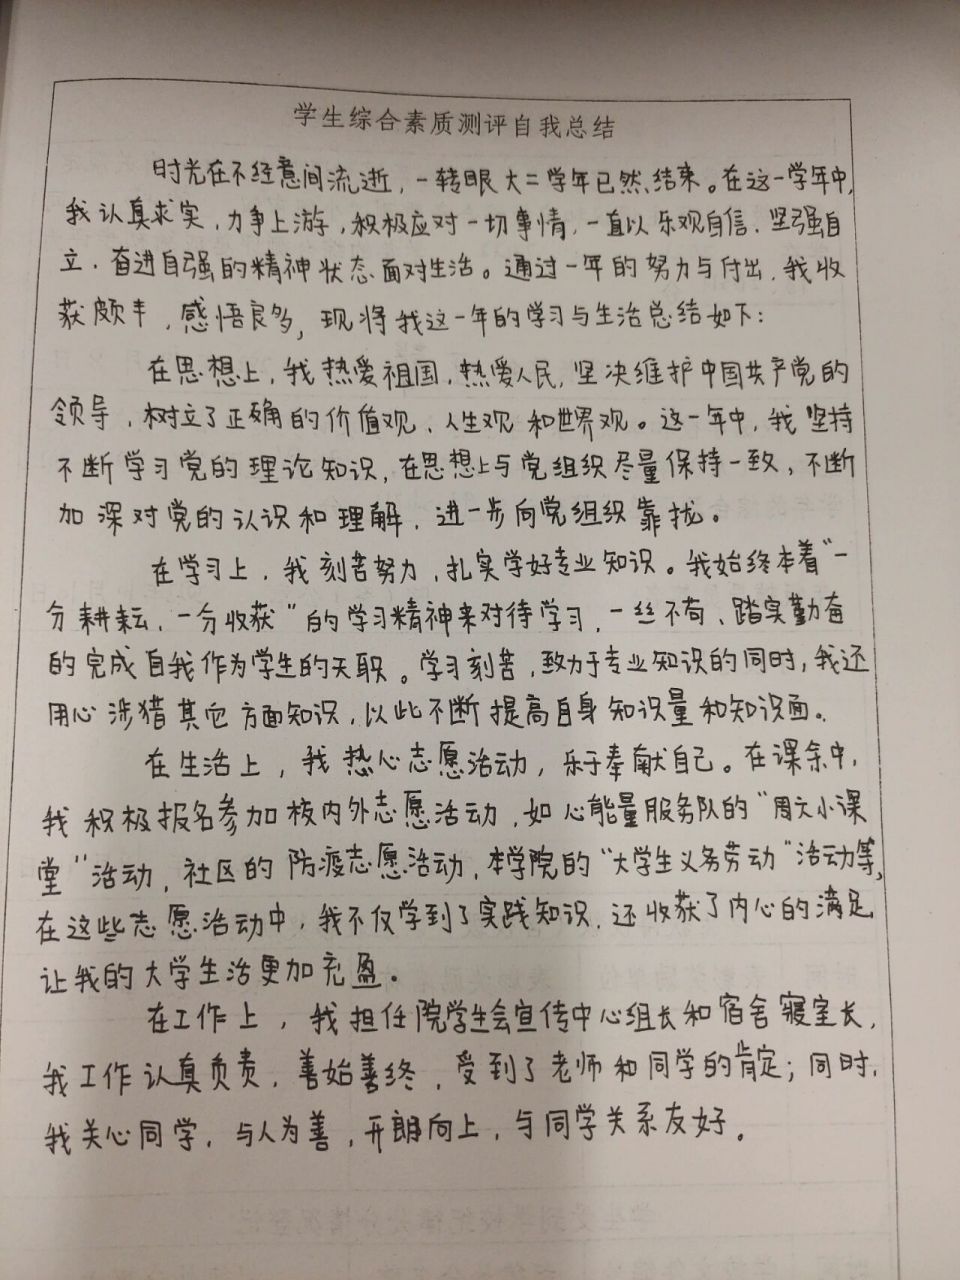 学生综合素质测评自我总结
时光在不经意间流逝，一转眼大二学年已然结束。在这一学年中，
我认真求实，力争上游，积极应对一切事情，一直以乐观自信、坚强自
立、奋进自强的精神状态面对生活。通过一年的努力与付出，我收
获颇丰，感悟良多，现将我这一年的学习与生活总结如下：
在思想上，我热爱祖国，热爱人民，坚决维护中国共产党的
领导，树立了正确的价值观、人生观和世界观。这一年中，我坚持
不断学习党的理论知识，在思想上与党组织尽量保持一致，不断
加深对党的认识和理解，进一步向党组织靠拢。
在学习上，我刻苦努力，扎实学好专业知识。我始终本着“一
分耕耘，一分收获”的学习精神来对待学习，一丝不苟、踏实勤奋
的完成自我作为学生的天职。学习刻苦，致力于专业知识的同时，我还
用心涉猎其它方面知识，以此不断提高自身知识量和知识面。
在生活上，我热心志愿活动，乐于奉献自己。在课余中，
我积极报名参加校内外志愿活动，如心能量服务队的“周六小课
堂”活动，社区的防疫志愿活动，本学院的“大学生义务劳动”活动等，
在这些志愿活动中，我不仅学到了实践知识，还收获了内心的满足，
让我的大学生活更加充盈。
在工作上，我担任院学生会宣传中心组长和宿舍寝室长，
我工作认真负责，善始善终，受到了老师和同学的肯定；同时，
我关心同学，与人为善，开朗向上，与同学关系友好。